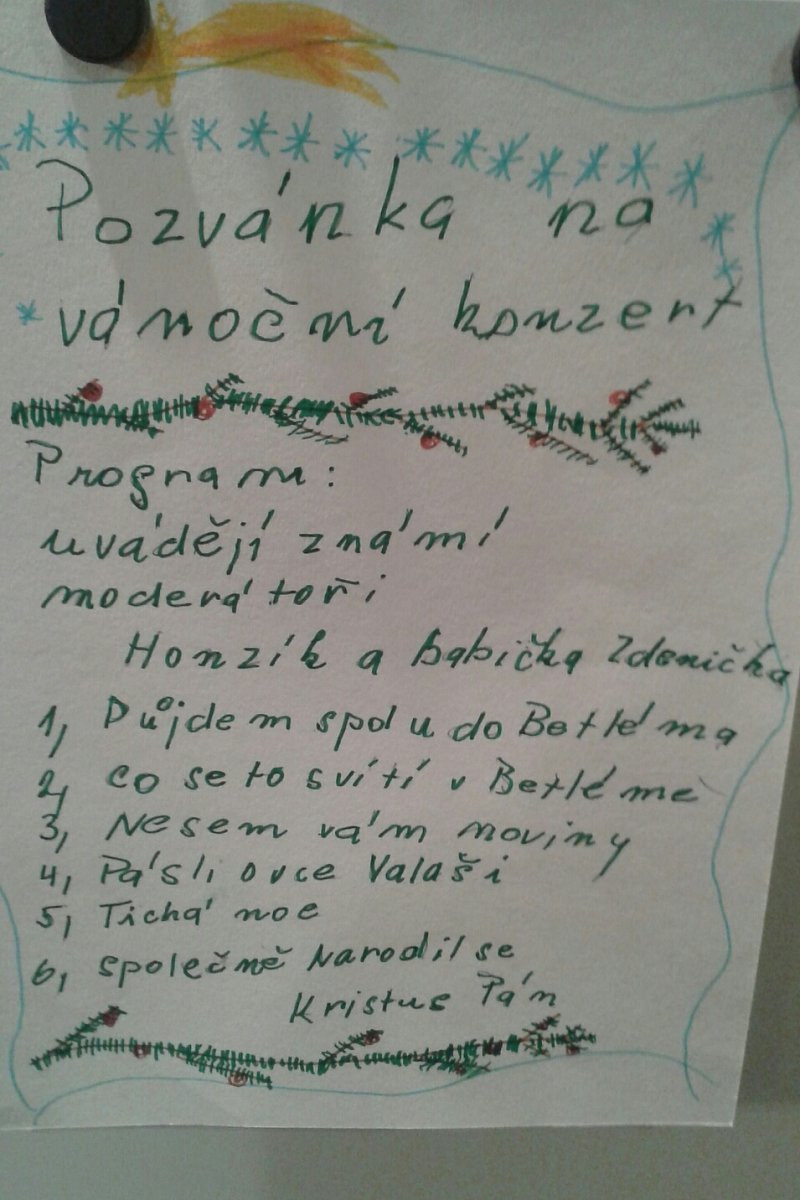 Pozvánka na
vánoční konzert
Program:
uvádějí známí
moderátoři
Honzík a babička Zdenička
1, Půjdem spolu do Betléma
2, co se to svítí v Betlémě
3, Nesem vám noviny
4, Pásli ovce Valaši
5, Tichá noc
6, společně Narodil se
Kristus Pán